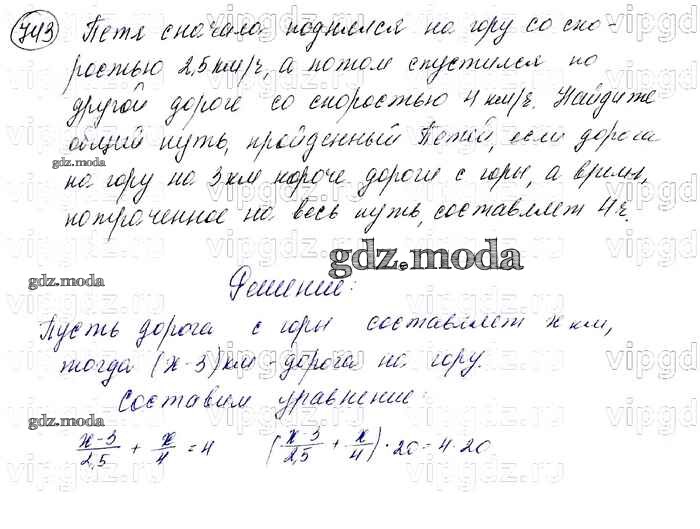 743 Петя сначала поднялся на гору со ско-
ростью 2,5 км/ч, а потом спустился по
другой дороге со скоростью 4 км/ч. Найдите
общий путь, пройденный Петей, если дорога
gdz.moda
на гору на 3 км короче дороги с горы, а время,
потраченное на весь путь, составляет 4 ч.
gdz.moda
gdz.moda
Решение:
Пусть дорога с горы составляет x км,
тогда (x-3) км - дорога на гору.
Составим уравнение:
gdz.moda
x-3/2,5 + x/4 = 4 (x-3/2,5 + x/4) · 20 = 4 · 20
vipgdz.ru